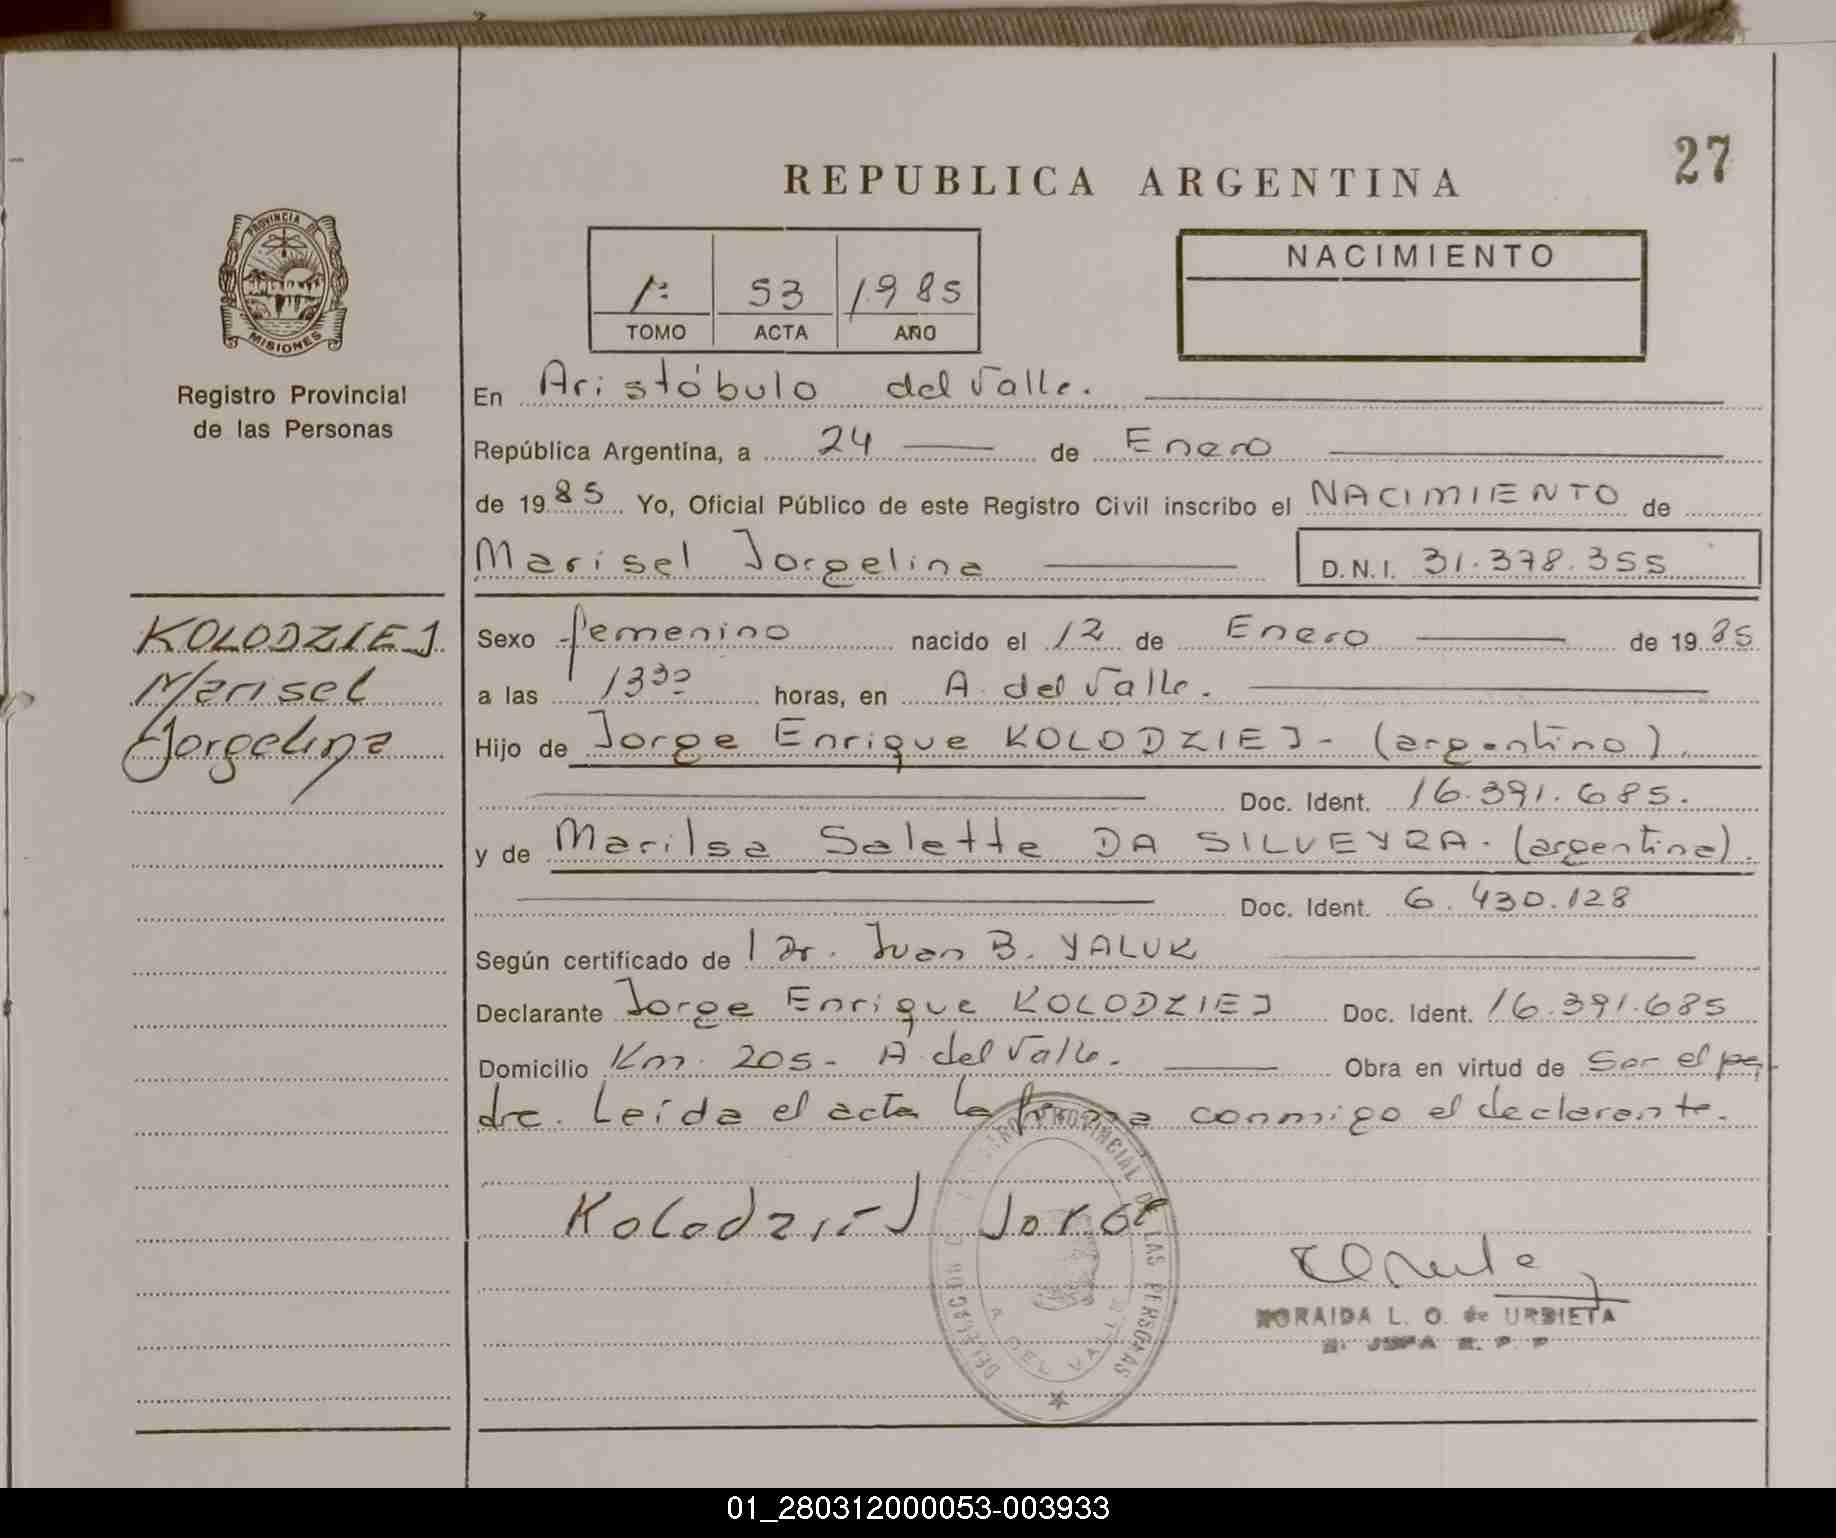 27
REPUBLICA ARGENTINA
PROVINCIA DE
MISIONES
Registro Provincial
de las Personas
1º 53 1985
TOMO ACTA AÑO
NACIMIENTO
En Aristóbulo del Valle.
República Argentina, a 24 de Enero
de 1985 Yo, Oficial Público de este Registro Civil inscribo el NACIMIENTO de
Marisel Jorgelina D.N.I. 31.378.355
KOLODZIEJ
Marisel
Jorgelina
Sexo femenino nacido el 12 de Enero de 1985
a las 13³⁰ horas, en A. del Valle.
Hijo de Jorge Enrique KOLODZIEJ - (argentino)
Doc. Ident. 16.391.685.
y de Marilsa Salette DA SILVEYRA. (argentina).
Doc. Ident. 6.430.128
Según certificado de l Dr. Juan B. YALUK
Declarante Jorge Enrique KOLODZIEJ Doc. Ident. 16.391.685
Domicilio Km. 205 - A. del Valle. Obra en virtud de Ser el pa
dre. Leída el acta la firma conmigo el declarante.
Kolodziej Jorge
REGISTRO PROVINCIAL DE LAS PERSONAS
A. DEL VALLE
L. O. de URBIETA
01_280312000053-003933